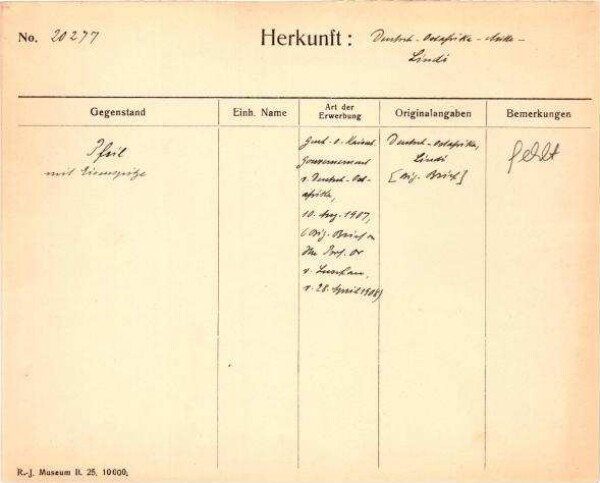 No. 20277
Herkunft: Deutsch-Ostafrika -
Lindi
Gegenstand
Einh. Name
Art der
Erwerbung
Originalangaben
Bemerkungen
Pfeil
mit Eisenspitze
Gouvernement
v. Deutsch-Ost-
afrika,
10. Aug. 1907,
(Orig. Brief
Prof. Dr
v. Luschan,
v. 28. April 1908)
Deutsch-Ostafrika,
Lindi
[Orig. Brief]
fehlt
R.-J. Museum II. 25. 10600.